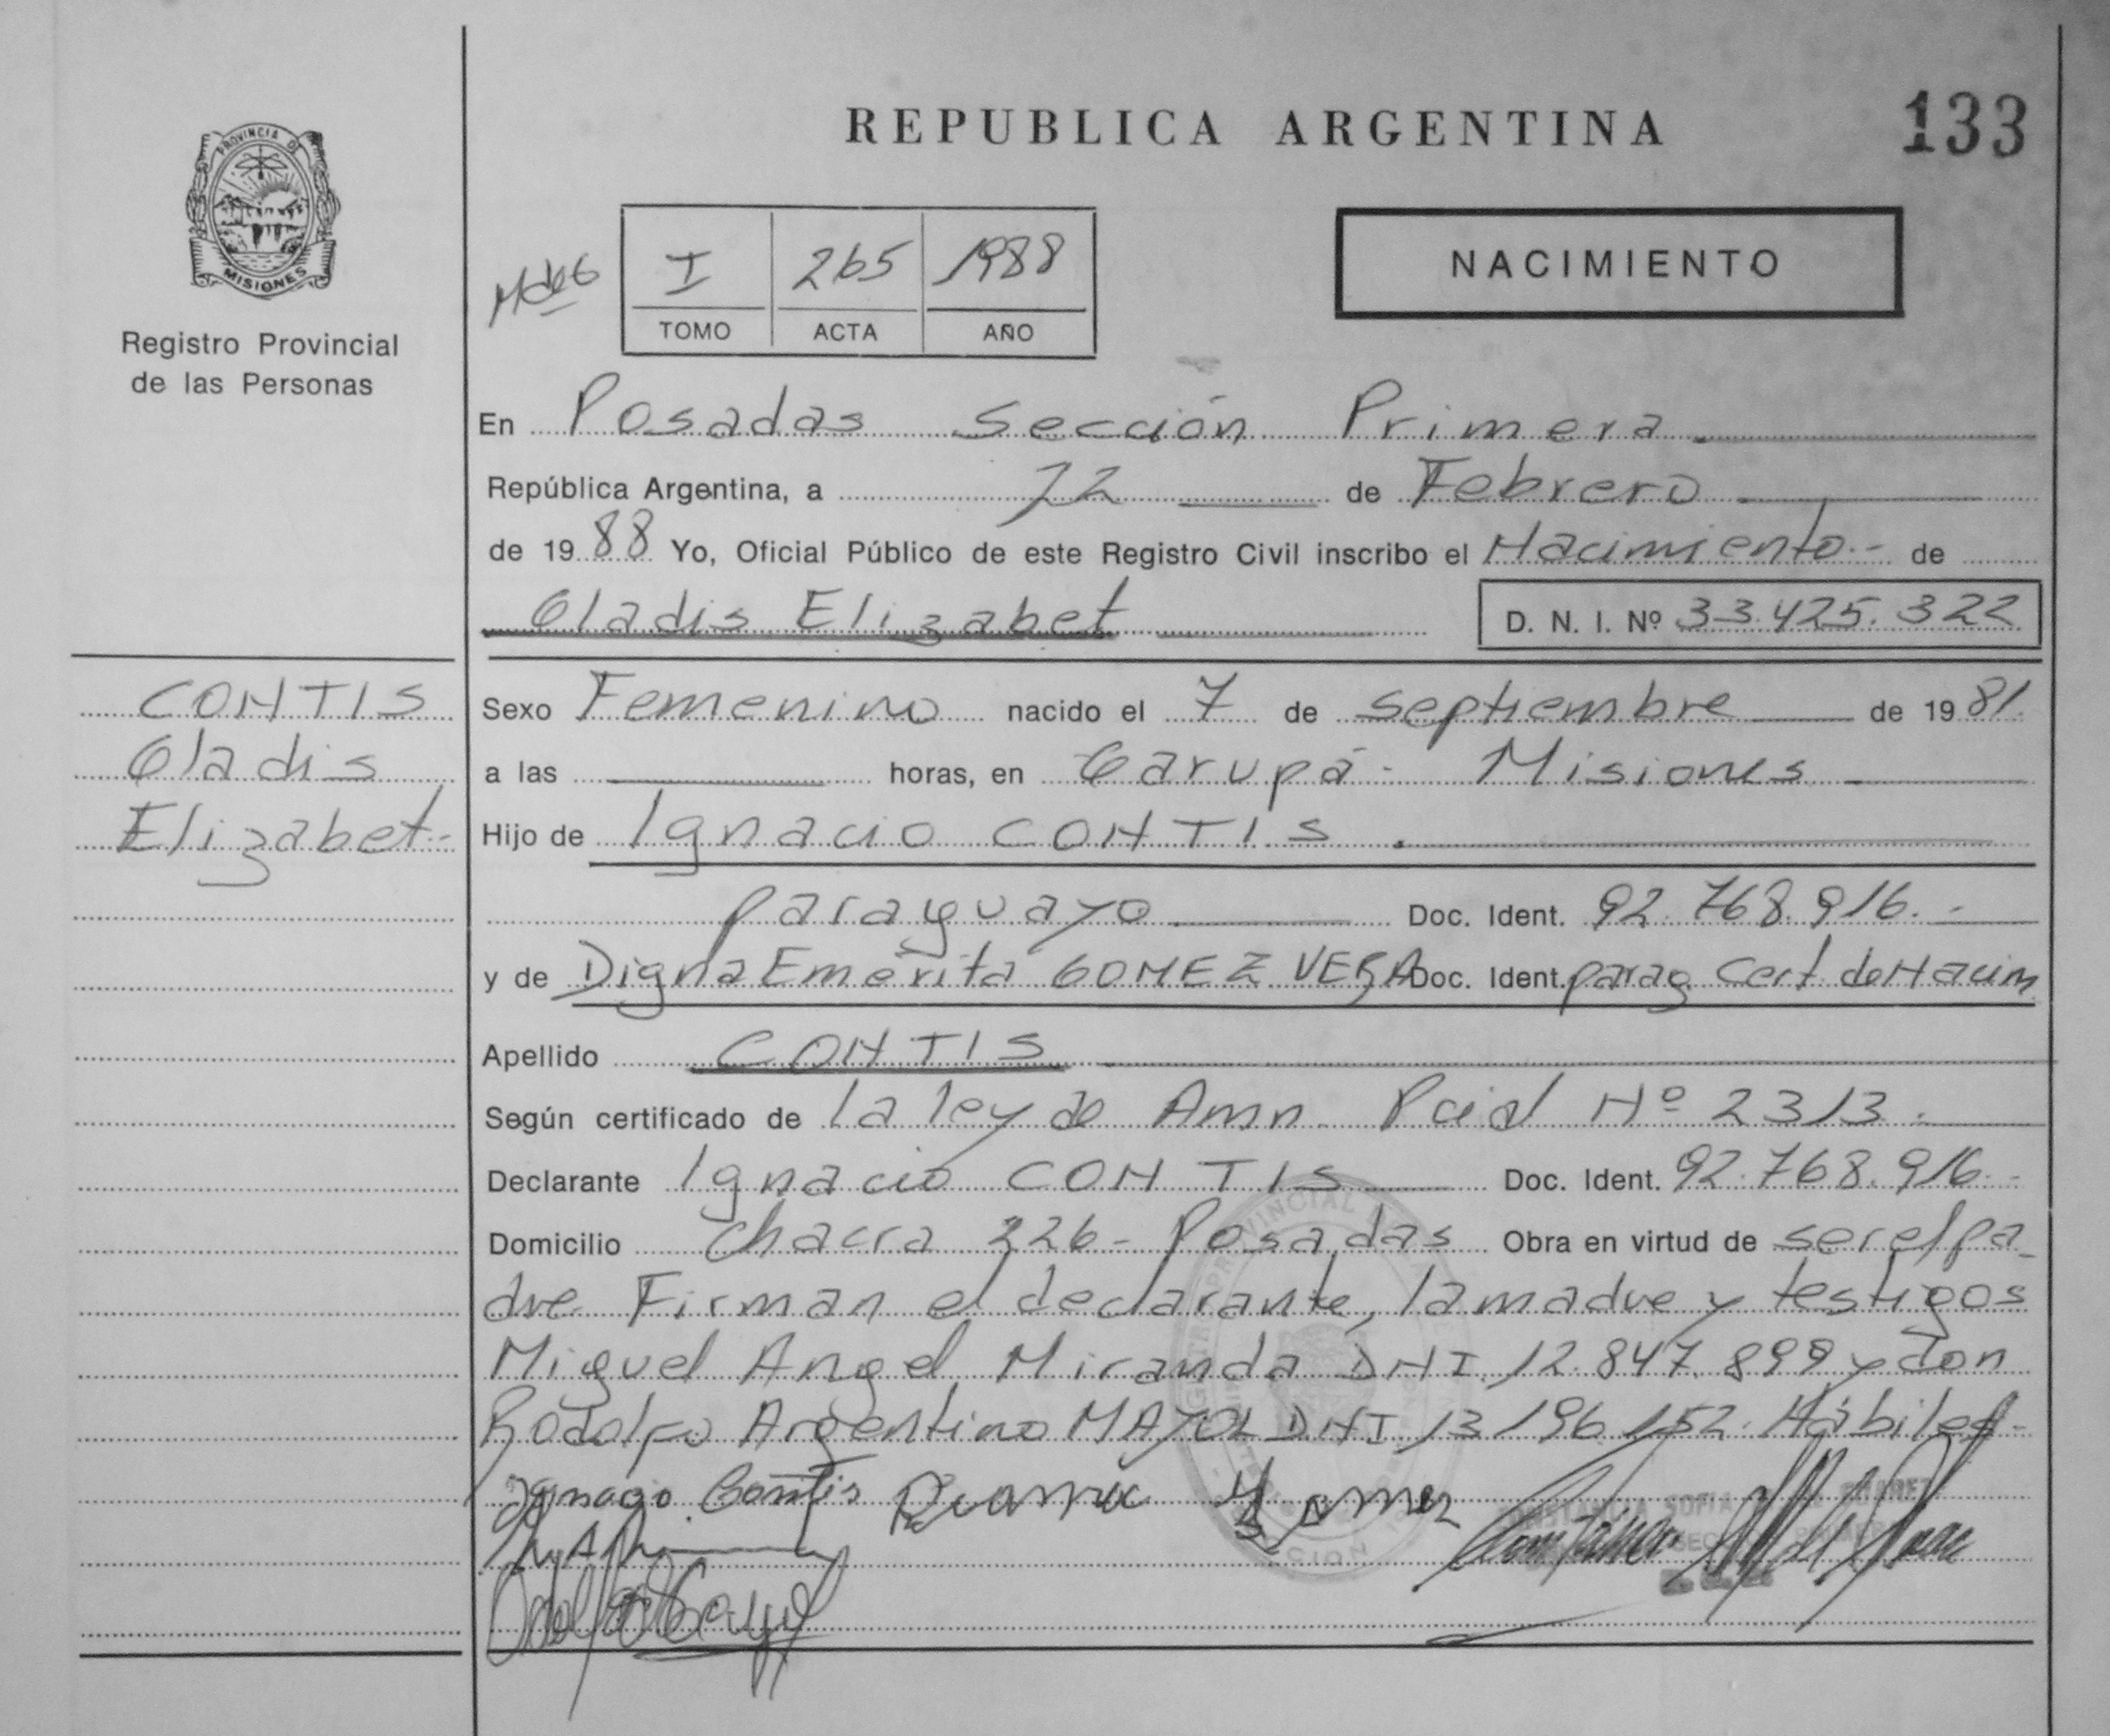 REPUBLICA ARGENTINA
133
PROVINCIA D
MISIONES
Registro Provincial
de las Personas
I 265 1988
TOMO ACTA AÑO
NACIMIENTO
En Posadas Sección Primera
República Argentina, a 12 de Febrero
de 1988 Yo, Oficial Público de este Registro Civil inscribo el Nacimiento.- de
Gladis Elizabet D. N. I. Nº 33.425.322
CONTIS
Gladis
Elizabet.-
Sexo Femenino nacido el 7 de septiembre de 1981.
a las horas, en Garupá - Misiones
Hijo de Ignacio CONTIS.
paraguayo Doc. Ident. 92.768.916.-
y de Digna Emerita GOMEZ VERA Doc. Ident. parag Cert de Nacim
Apellido CONTIS
Según certificado de la ley de Amn. Pcial Nº 2313.
Declarante Ignacio CONTIS Doc. Ident. 92.768.916.-
Domicilio Chacra 226- Posadas Obra en virtud de ser el pa-
dre Firman el declarante, la madre y testigos
Miguel Angel Miranda DNI. 12.847.899 y don
Rodolfo Argentino MAYOL DNI 13.196.152. Hábiles.-
Ignacio Contis